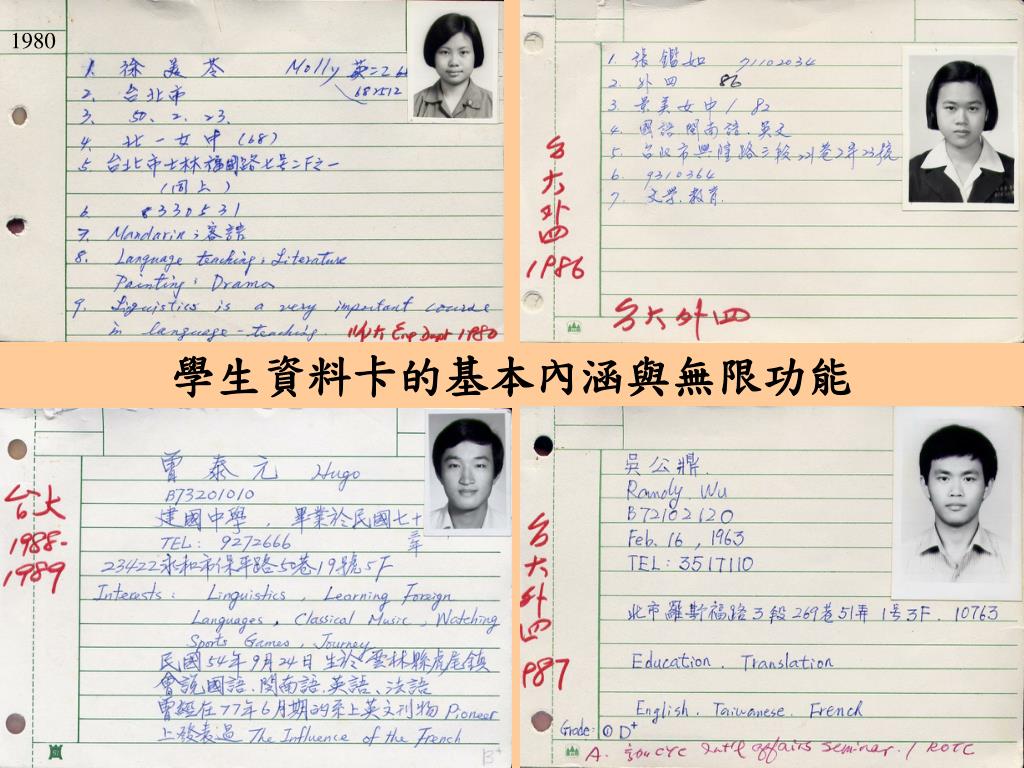 1980
1. 徐美苓 Molly 英二乙
682512
2. 台北市
3. 50. 2. 23.
4. 北一女中 (68)
5. 台北市士林福國路七号二F之一
(同上)
6. 8330531
7. Mandarin; 客語
8. Language teaching; Literature
Painting; Drama
9. Linguistics is a very important course
in language-teaching. Eng Dept 1980
1. 張鑑如 71102034
2. 外四 86
3. 景美女中 / 82
4. 國語. 閩南語. 英文
5. 台北市興隆路三段221巷2弄23號
6. 9310364
7. 文學. 教育.
台大外四
1986
台大外四
學生資料卡的基本內涵與無限功能
曾泰元 Hugo
B73201010
建國中學，畢業於民國七十
三年
TEL: 9272666
23422永和市保平路50巷19號5F
Interests: Linguistics, Learning Foreign
Languages, Classical Music, Watching
Sports Games, Journey
民國54年9月24日生於雲林縣虎尾鎮
會說國語.閩南語.英語、法語
曾經在77年6月期的系上英文刊物Pioneer
上發表過 The Influence of the French
台大
1988-
1989
B+
吳公鼎.
Randy. Wu
B72102120
Feb. 16, 1963
TEL: 3517110
北市羅斯福路3段269巷51弄1号3F. 10763
Education. Translation
English. Taiwanese. French
台大外四
1987
Grade: ① D+
A. CYC Int'l affairs seminar. / ROTC